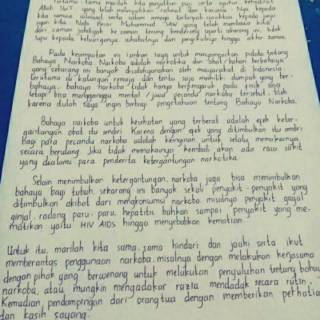 Pertama-tama marilah kita panjatkan puji serta syukur kehadirat
Allah SWT yang telah melimpahkan rahmat dan karunia-Nya kepada
kita semua
juga Nabi Besar Muhammad SAW yang telah membawa kita
dari zaman jahiliyah ke zaman terang benderang seperti sekarang ini, tidak
lupa kepada keluarganya, sahabatnya dan pengikutnya hingga akhir zaman.
Pada kesempatan ini izinkan saya untuk menyampaikan pidato tentang
Bahaya Narkoba. Narkoba adalah narkotika dan obat/bahan berbahaya
yang sekarang ini banyak disalahgunakan oleh masyarakat di Indonesia
terutama di kalangan remaja dan tentu saja memiliki dampak yang ber-
bahaya. bahaya narkoba tidak hanya berpengaruh pada fisik saja
tetapi bisa mengganggu mental / jiwa pecandu narkoba tersebut. Oleh
karena itulah saya ingin berbagi pengetahuan tentang Bahaya Narkoba.
Bahaya narkoba untuk keukutan yang terberat adalah efek keter-
gantungan obat itu sendiri. Karena dengan efek yang ditimbulkan itu sendiri
Bagi para pecandu narkoba adalah keinginan untuk selalu memakainya
secara berulang. Jika tidak memakainya kembali akan ada rasa sakit
yang dialami para penderita ketergantungan narkotika.
Selain menimbulkan ketergantungan, narkoba juga bisa menimbulkan
bahaya bagi tubuh. sekarang ini banyak sekali penyakit-penyakit yang
ditimbulkan akibat dari mengkonsumsi narkoba misalnya penyakit gagal
ginjal, radang paru-paru, hepatitis bahkan sampai penyakit yang me-
matikan yaitu HIV AIDS hingga menyebabkan kematian.
Untuk itu, marilah kita sama-sama hindari dan jauhi serta ikut
memberantas penggunaan narkoba, misalnya dengan melakukan kerjasama
dengan pihak yang berwenang untuk melakukan penyuluhan tentang bahaya
narkoba atau mungkin mengadakan razia mendadak secara rutin.
Kemudian pendampingan dari orang tua dengan memberikan perhatian
dan kasih sayang.